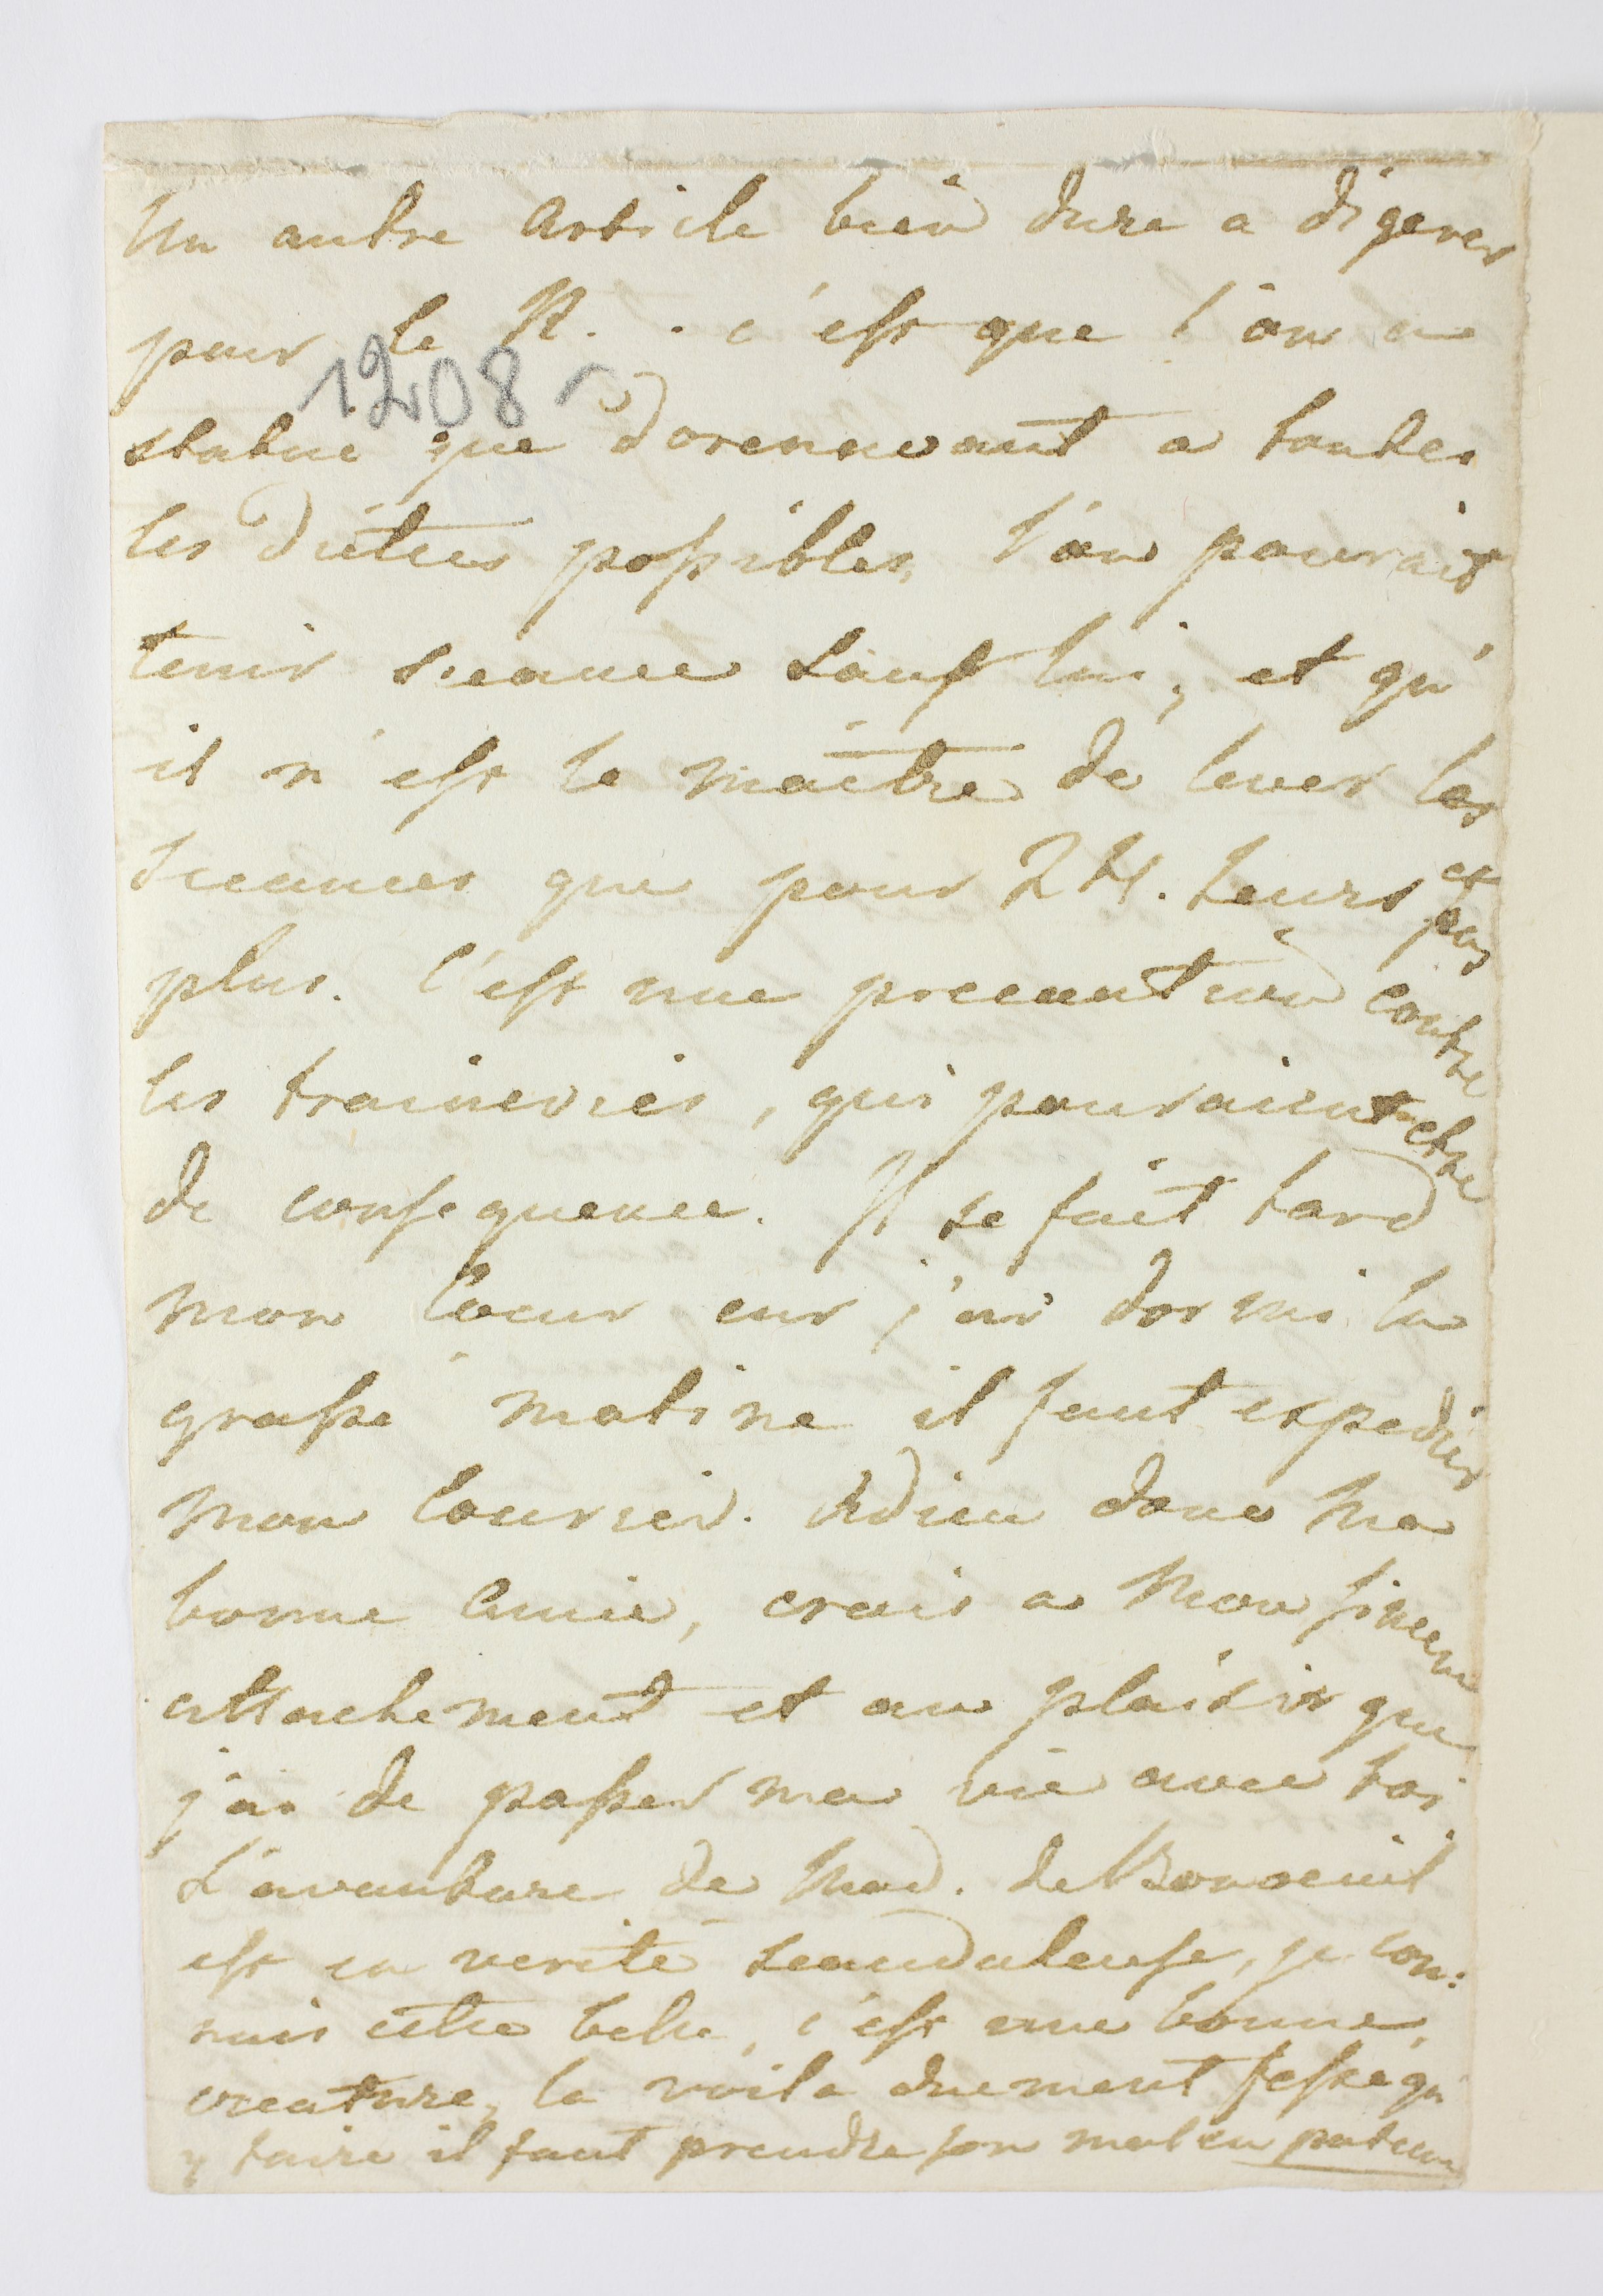 Un autre Article bien dure a digerer
pour le R. . c'est que l'on a
1208 r
statué que dorennavant a toutes
les diètes possibles, l'on pourait
tenir seance sauf lui, et qu'
il n'est le maître de lever les
seeances que pour 24. heurs et pas
plus. C'est une precaution contre
les traineries, qui pouraient etre
de consequence. Il se fait tard
mon Coeur car j'ai dormi la
grasse matine il faut expedier
mon Courier. Adieu donc ma
bonne Amie, crois a mon sincere
attachement et au plaisir que
j'ai de passer ma vie avec toi
L'avanture de Mad. de Bonoeuil
est en verité scandaleuse, je con:
nais cette belle, c'est une bonne
creature, la voila duement fessée qu'
y faire il faut prendre son mal en patience